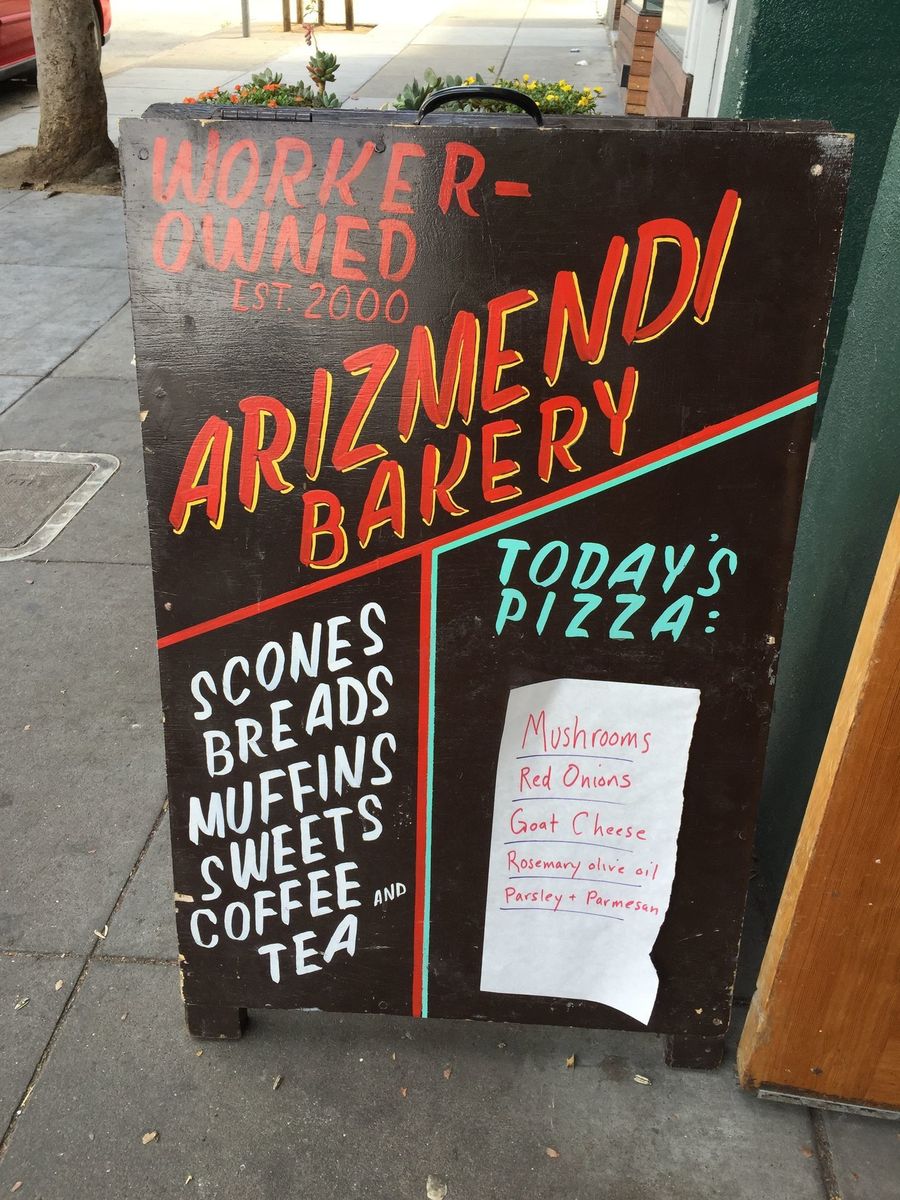 WORKER-
OWNED
EST. 2000
ARIZMENDI
BAKERY
SCONES
BREADS
MUFFINS
SWEETS
COFFEE AND
TEA
TODAY'S
PIZZA:
Mushrooms
Red Onions
Goat Cheese
Rosemary olive oil
Parsley + Parmesan